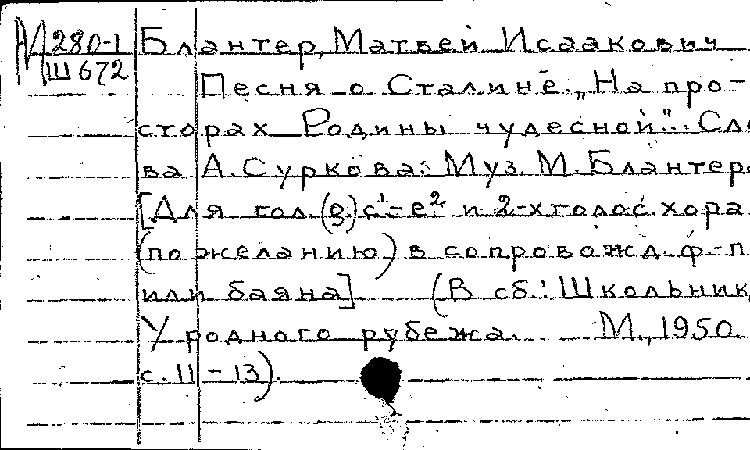 М 280-1
Ш672
Блантер, Матвей Исаакович
Песня о Сталине. „На про-
сторах Родины чудесной". Сло
ва А. Суркова. Муз. М. Блантера
[Для гол. (e) c¹-e² и 2-х голос. хора
(по желанию) в сопровожд. ф-п
или баяна] (В сб.: Школьник,
У родного рубежа. М., 1950.
с. 11-13).